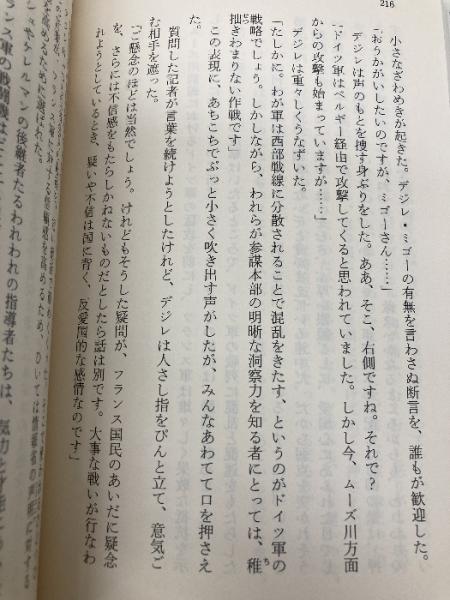 216
小さなざわめきが起きた。デジレ・ミゴーの有無を言わさぬ断言を、誰もが歓迎した。
「おうかがいしたいのですが、ミゴーさん……」
デジレは声のもとを捜す身ぶりをした。ああ、そこ、右側ですね。それで?
「ドイツ軍はベルギー経由で攻撃してくると思われていました。しかし今、ムーズ川方面
からの攻撃も始まっていますが……」
デジレは重々しくうなずいた。
「たしかに。わが軍は西部戦線に分散されることで混乱をきたす、というのがドイツ軍の
戦略でしょう。しかしながら、われらが参謀本部の明晰な洞察力を知る者にとっては、稚
拙きわまりない作戦です」
この表現に、あちこちでぷっと小さく吹き出す声がしたが、みんなあわてて口を押さえ
た。
質問した記者が言葉を続けようとしたけれど、デジレは人さし指をぴんと立て、意気ご
む相手を遮った。
「ご懸念のほどは当然でしょう。けれどもそうした疑問が、フランス国民のあいだに疑念
を、さらには不信感をもたらしかねないものだとしたら話は別です。大事な戦いが行なわ
れようとしているとき、疑いや不信は国に背く、反愛国的な感情なのです」